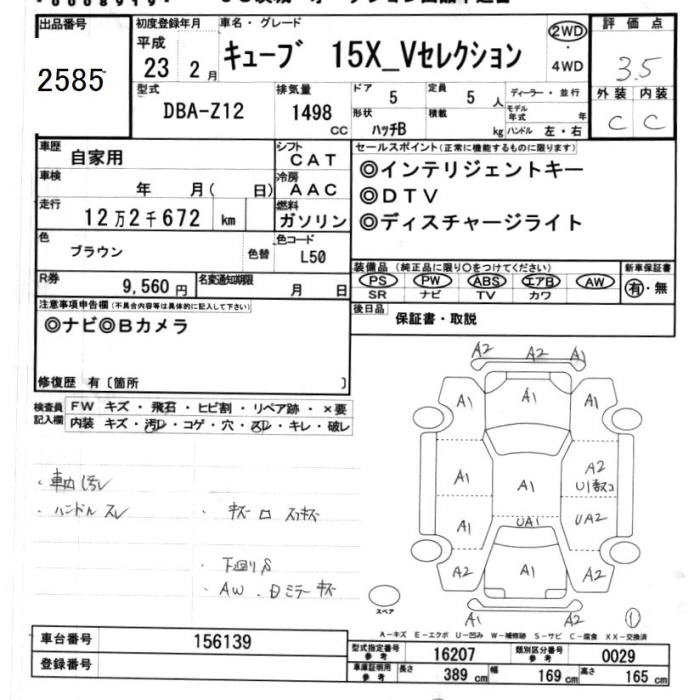 出品番号
2585
初度登録年月
平成
23 2月
車名・グレード
キューブ 15X_Vセレクション
2WD
・
4WD
評価点
3.5
外装 内装
C C
型式
DBA-Z12
排気量
1498 CC
ドア 5
定員 5人
形状 ハッチB
積載 kg
ディーラー・並行
モデル年式 年
ハンドル 左・右
車歴 自家用
シフト CAT
車検 年 月( 日)
冷房 AAC
走行 12万2千672 km
燃料 ガソリン
色 ブラウン
色替
色コード L50
R券 9,560円
名変通知期限 月 日
セールスポイント(正常に機能するものに限ります)
◎インテリジェントキー
◎DTV
◎ディスチャージライト
装備品(純正品に限り○をつけてください)
PS PW ABS エアB AW
SR ナビ TV カワ
新車保証書
有・無
後日品 保証書・取説
注意事項申告欄(不具合内容等は具体的に記入して下さい)
◎ナビ◎Bカメラ
修復歴 有〔箇所 〕
検査員記入欄
FW キズ・飛石・ヒビ割・リペア跡・×要
内装 キズ・汚レ・コゲ・穴・スレ・キレ・破レ
・車内汚レ
・ハンドルスレ
・キズ ロ スリキズ
・下廻りS
・AW・Dミラーキズ
A2 A2 A1
A1 A1 A1
A1 A1 A2
U1数コ
A1 UA1 UA2
A2 A1 A2
A1 A2
スペア
①
A-キズ E-エクボ U-凹み W-補修跡 S-サビ C-腐食 XX-交換済
車台番号 156139
登録番号
型式指定番号 参考 16207
類別区分番号 参考 0029
車庫証明用 参考 長さ 389 cm 幅 169 cm 高さ 165 cm